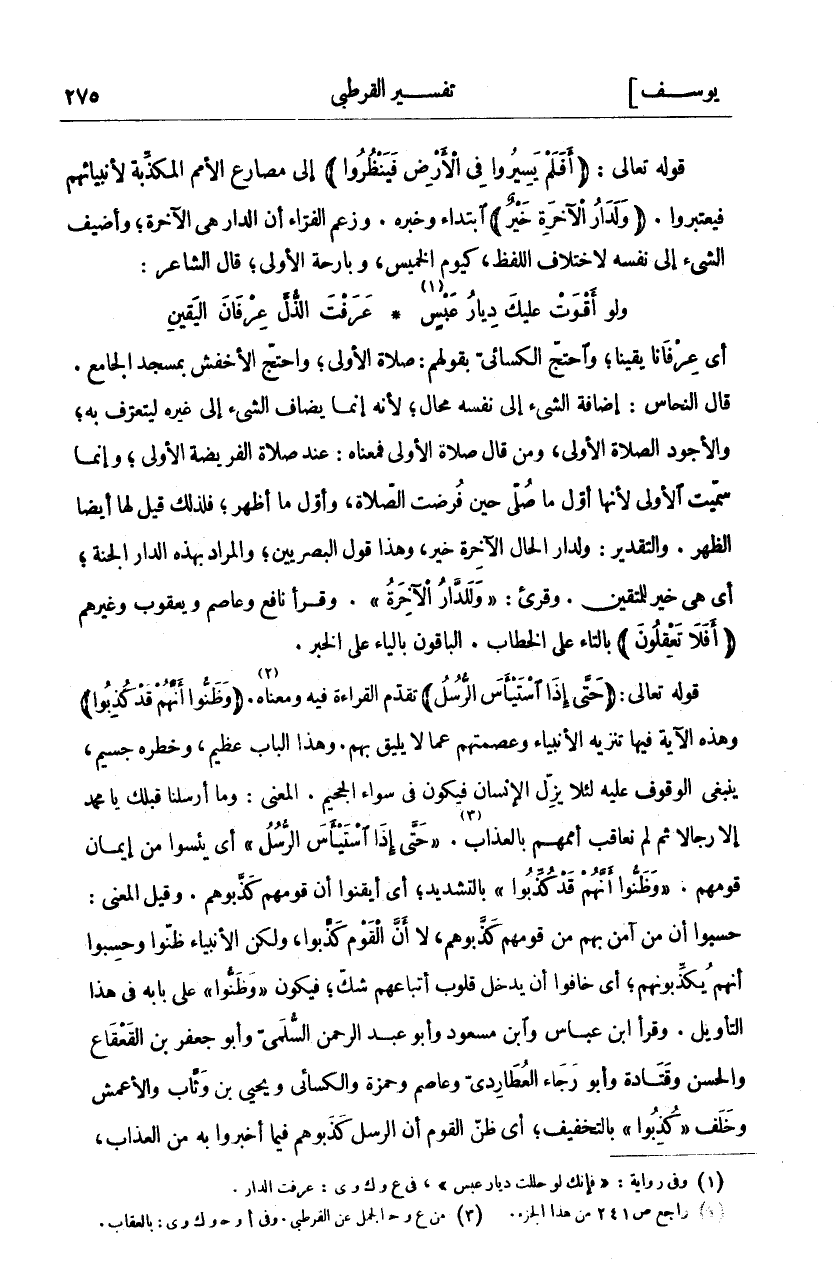 يوســف] تفســير القرطبى ٢٧٥
قوله تعالى : ﴿ أَفَلَمْ يَسِيرُوا فِى الْأَرْضِ فَيَنْظُرُوا ﴾ إلى مصارع الأمم المكذِّبة لأنبيائهم
فيعتبروا . ﴿ وَلَدَارُ الْآخِرَةِ خَيْرٌ ﴾ ٱبتداء وخبره . وزعم الفرّاء أن الدار هى الآخرة؛ وأضيف
الشىء إلى نفسه لاختلاف اللفظ، كيوم الخميس، وبارحة الأولى؛ قال الشاعر :
ولو أَقْوَتْ عليكَ دِيارُ عَبْسٍ (١) * عَرَفْتَ الذُّلَّ عِرْفَانَ اليَقينِ
أى عِرْفَانا يقينا؛ وٱحتجّ الكسائىّ بقولهم: صلاة الأولى؛ واحتجّ الأخفش بمسجد الجامع .
قال النحاس : إضافة الشىء إلى نفسه محال؛ لأنه إنمـا يضاف الشىء إلى غيره ليتعرّف به؛
والأجود الصلاة الأولى، ومن قال صلاة الأولى فمعناه : عند صلاة الفريضة الأولى؛ وإنمـا
سمّيت ٱلأولى لأنها أوّل ما صُلّى حين فُرضت الصّلاة، وأوّل ما أظهر؛ فلذلك قيل لها أيضا
الظهر . والتقدير : ولدار الحال الآخرة خير، وهذا قول البصريين؛ والمراد بهذه الدار الجنة؛
أى هى خير للمتقين . وقرئ : « وَلَلدَّارُ الْآخِرَةُ » . وقـرأ نافع وعاصم ويعقوب وغيرهم
﴿ أَفَلَا تَعْقِلُونَ ﴾ بالتاء على الخطاب . الباقون بالياء على الخبر .
قوله تعالى: ﴿ حَتَّى إِذَا ٱسْتَيْأَسَ الرُّسُلُ ﴾ تقدّم القراءة فيه ومعناه (٢) . ﴿ وَظَنُّوا أَنَّهُمْ قَدْ كُذِبُوا ﴾
وهذه الآية فيها تنزيه الأنبياء وعصمتهم عما لا يليق بهم. وهذا الباب عظيم، وخطره جسيم،
ينبغى الوقوف عليه لئلا يزِلّ الإنسان فيكون فى سواء الجحيم . المعنى : وما أرسلنا قبلك يا محمد
إلا رجالا ثم لم نعاقب أممهـم بالعذاب (٣) . « حَتَّى إِذَا ٱسْتَيْأَسَ الرُّسُلُ » أى يئسوا من إيمـان
قومهم . « وَظَنُّوا أَنَّهُمْ قَدْ كُذِّبُوا » بالتشديد؛ أى أيقنوا أن قومهم كَذَّبوهم . وقيل المعنى :
حسبوا أن من آمن بهم من قومهم كَذَّبوهم، لا أنَّ الْقَوْم كَذَّبوا، ولكن الأنبياء ظنّوا وحسِبوا
أنهم يُكذِّبونهم؛ أى خافوا أن يدخل قلوب أتباعهم شكّ؛ فيكون «وَظَنُّوا» على بابه فى هذا
التأويل . وقرأ ابن عبـاس وٱبن مسعود وأبو عبـد الرحمن السُّلَمىّ وأبو جعفر بن القَعْقَاع
والحسن وقَتَـادة وأبو رَجَاء العُطَارِدىّ وعاصم وحمزة والكسائى ويحيى بن وَثَّاب والأعمش
وخَلَف «كُذِبُوا» بالتخفيف؛ أى ظنّ القوم أن الرسل كَذَبوهم فيما أخبروا به من العذاب،
(١) وفى رواية : « فإنك لو حللت ديار عبس » ، فى ع و ك و ى : عرفت الدار .
(٢) راجع ص ٢٤١ من هذا الجزء. (٣) من ع و حـ الجمل عن القرطبى. وفى أ و حـ و ك و ى : بالعقاب .